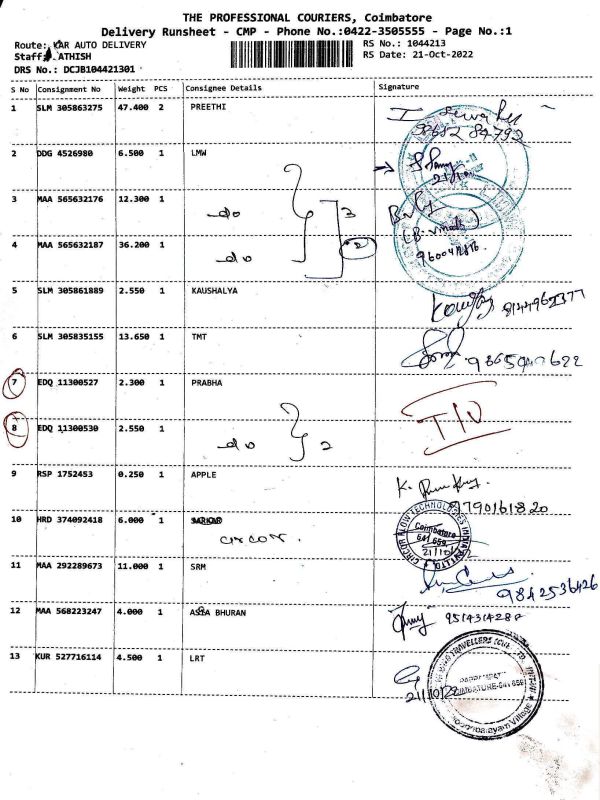 THE PROFESSIONAL COURIERS, Coimbatore
Delivery Runsheet - CMP - Phone No.:0422-3505555 - Page No.:1
Route: KAR AUTO DELIVERY
RS No.: 1044213
Staff: ATHISH
RS Date: 21-Oct-2022
DRS No.: DCJB104421301
S No Consignment No Weight PCS Consignee Details Signature
1 SLM 305863275 47.400 2 PREETHI
98652 84792
2 DDG 4526980 6.500 1 LMW
3 MAA 565632176 12.300 1 do 3
4 MAA 565632187 36.200 1 do 2
5 SLM 305861889 2.550 1 KAUSHALYA
6 SLM 305835155 13.650 1 TMT
7 EDQ 11300527 2.300 1 PRABHA
8 EDQ 11300530 2.550 1 do 2
9 RSP 1752453 0.250 1 APPLE
9790161820
10 HRD 374092418 6.000 1
CIRCOR
Coimbatore
641 659
11 MAA 292289673 11.000 1 SRM
9842536426
12 MAA 568223247 4.000 1 BHURAN
13 KUR 527716114 4.500 1 LRT
21/10/22